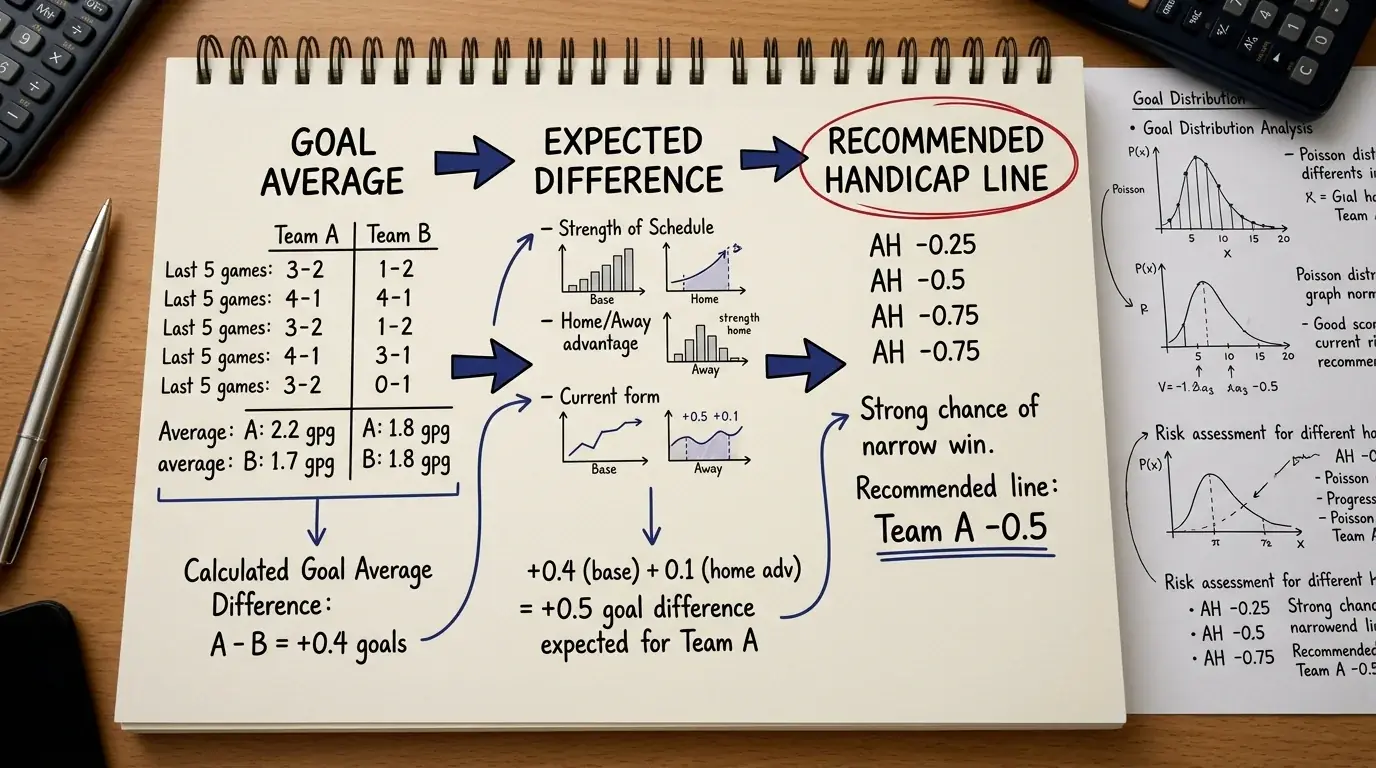 GOAL
AVERAGE
EXPECTED
DIFFERENCE
RECOMMENDED
HANDICAP LINE
Team A Team B
Last 5 games: 3-2 1-2
Last 5 games: 4-1 4-1
Last 5 games: 3-2 1-2
Last 5 games: 4-1 3-1
Last 5 games: 3-2 0-1
Average: A: 2.2 gpg A: 1.8 gpg
average: B: 1.7 gpg B: 1.8 gpg
Calculated Goal Average
Difference:
A - B = +0.4 goals
- Strength of Schedule
Base
Home
- Home/Away
advantage
strength
home
Away
- Current form
Base
+0.5 +0.1
Away
+0.4 (base) + 0.1 (home adv)
= +0.5 goal difference
expected for Team A
AH -0.25
AH -0.5
AH -0.75
AH -0.75
Strong chance of
narrow win.
Recommended line:
Team A -0.5
Goal Distribution
• Goal Distribution Analysis
P(x)
Poisson
5 10 15 20
X
- Poisson dist
differents in
Team
P(x)
5 10 15 20
Poisson dist
graph norm
- Good sco
current
recomme
-0.5
Risk assessment for different
P(x)
X
AH
- Poisson
- Progres
- Poisson
Team A
Risk assessment for different
• AH -0.25 Strong chan
• AH -0.5 narrowend li
• AH -0.75 Recommended
Team A -0.5